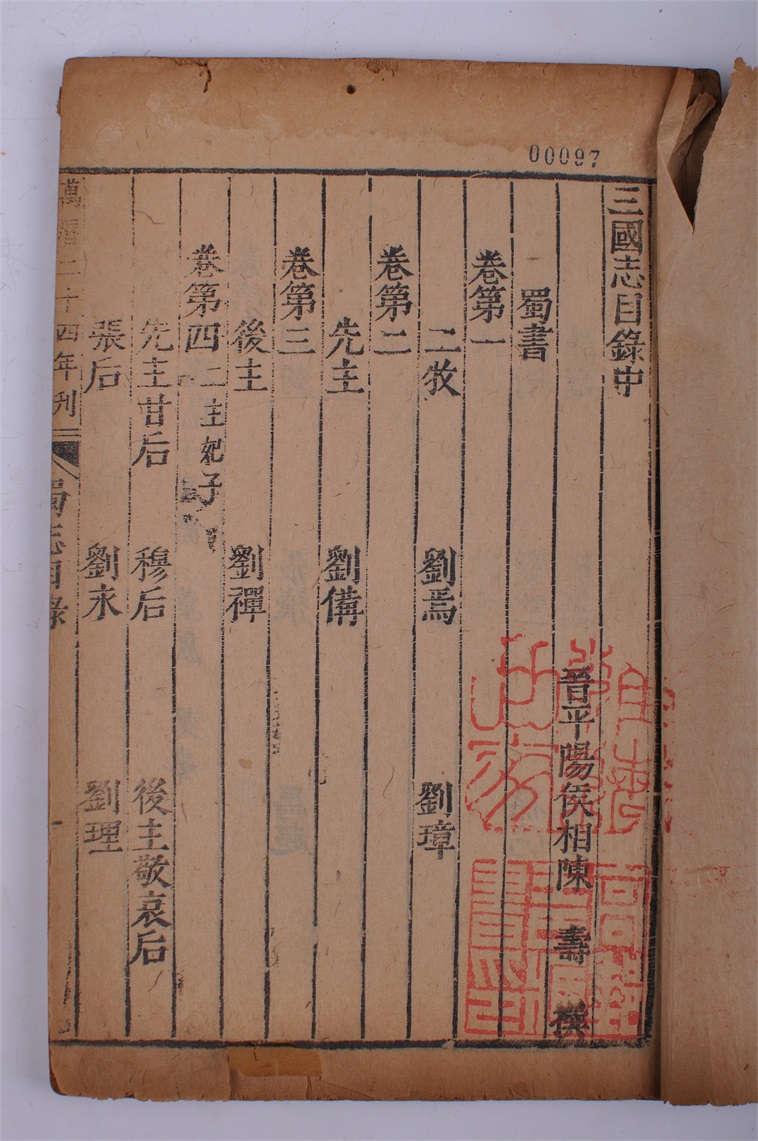 00097
三國志目錄中
晉平陽侯相陳 壽 撰
蜀書
卷第一
二牧 劉焉 劉璋
卷第二
先主 劉備
卷第三
後主 劉禪
卷第四 二主妃子
先主甘后 穆后 後主敬哀后
張后 劉永 劉理
萬曆二十四年刊 蜀志目錄 一